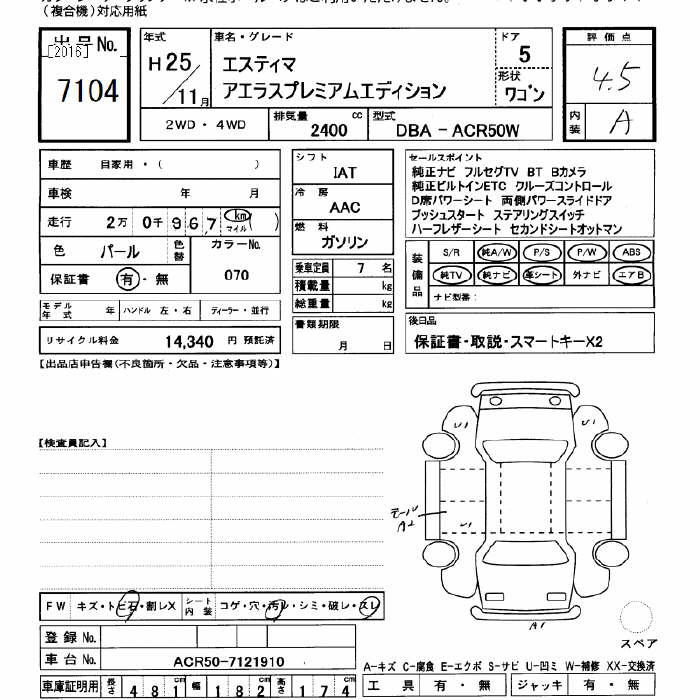 (複合機)対応用紙
出品No.
[2016]
7104
年式
H25/11月
車名・グレード
エスティマ
アエラスプレミアムエディション
ドア
5
形状
ワゴン
評価点
4.5
内装
A
2WD・4WD
排気量
2400
cc
型式
DBA-ACR50W
車歴 自家用・( )
車検 年 月
走行 2万 0千 967 km マイル ( )
色 パール
色替
カラーNo.
070
保証書 有・無
シフト
IAT
冷房
AAC
燃料
ガソリン
乗車定員 7 名
積載量 kg
総重量 kg
書類期限
月 日
セールスポイント
純正ナビ フルセグTV BT Bカメラ
純正ビルトインETC クルーズコントロール
D席パワーシート 両側パワースライドドア
プッシュスタート ステアリングスイッチ
ハーフレザーシート セカンドシートオットマン
装備品
S/R 純A/W P/S P/W ABS
純TV 純ナビ 革シート 外ナビ エアB
ナビ型番:
モデル年式 年 ハンドル 左・右 ディーラー・並行
リサイクル料金 14,340 円 預託済
後日品
保証書・取説・スマートキーX2
【出品店申告欄(不良箇所・欠品・注意事項等)】
【検査員記入】
U1
U1
モール
A2
U1
A1
スペア
FW キズ・トビ石・割レX
シート内装 コゲ・穴・汚レ・シミ・破レ・スレ
登録No.
車台No. ACR50-7121910
A-キズ C-腐食 E-エクボ S-サビ U-凹ミ W-補修 XX-交換済
車庫証明用 長さ 481 cm 幅 182 cm 高さ 174 cm
工具 有・無 ジャッキ 有・無